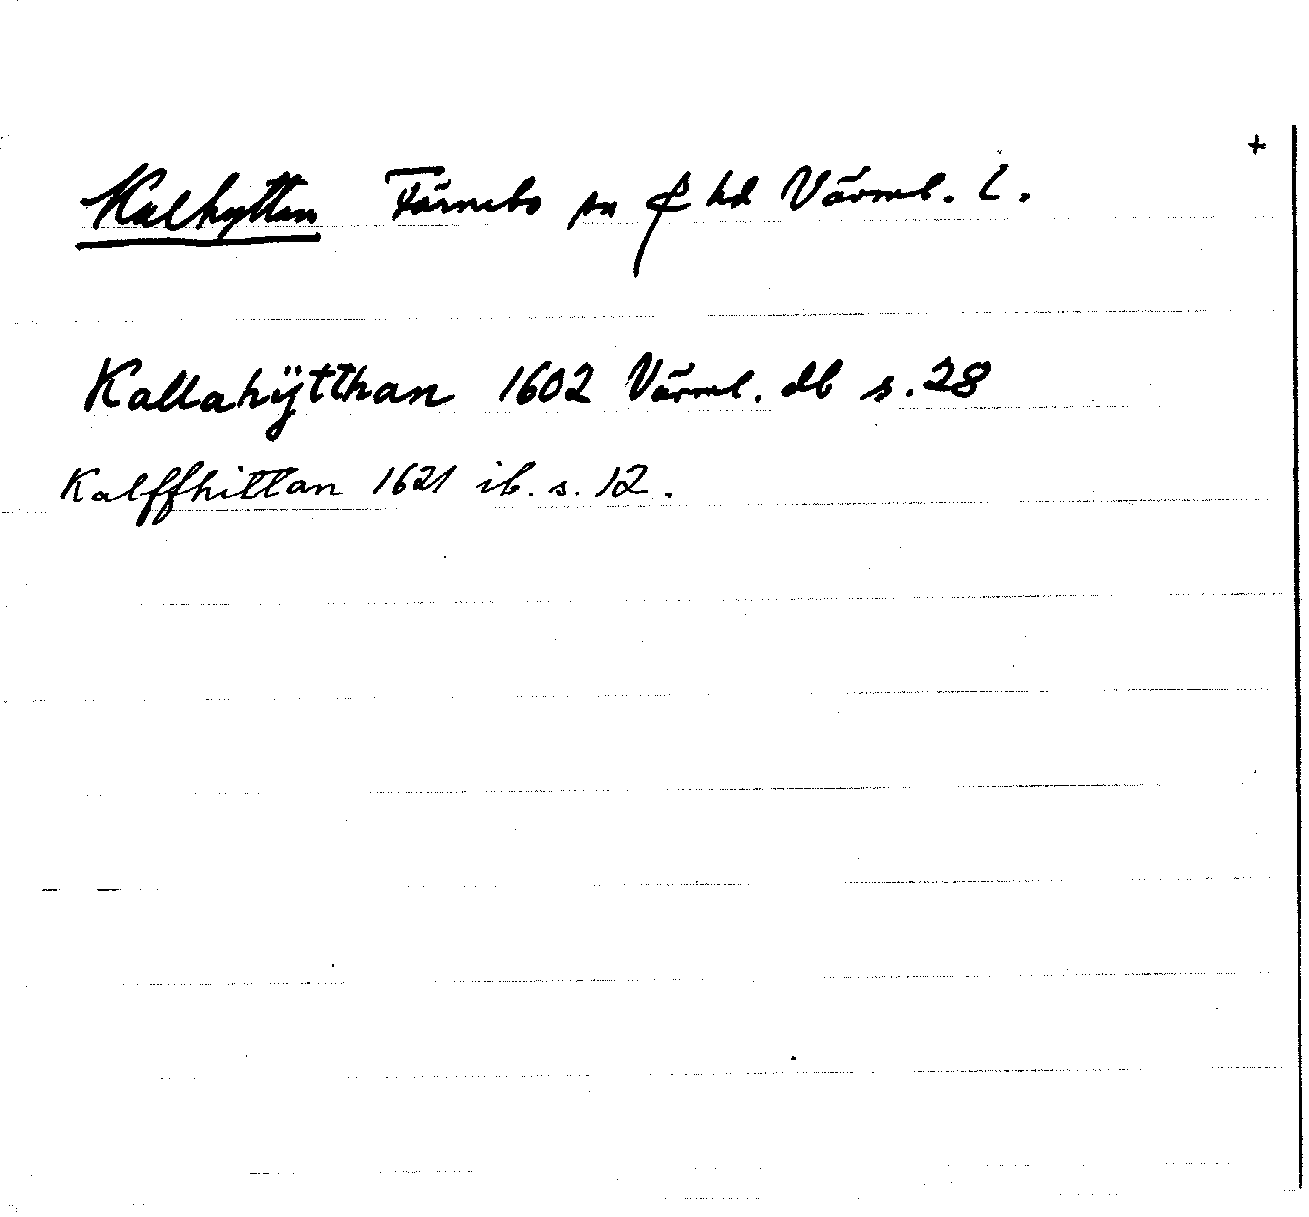 +
Kalhyttan Färnebo sn o hd Värml. l.
Kallahÿtthan 1602 Värml. db s. 28
Kalffhittan 1621 ib. s. 12.